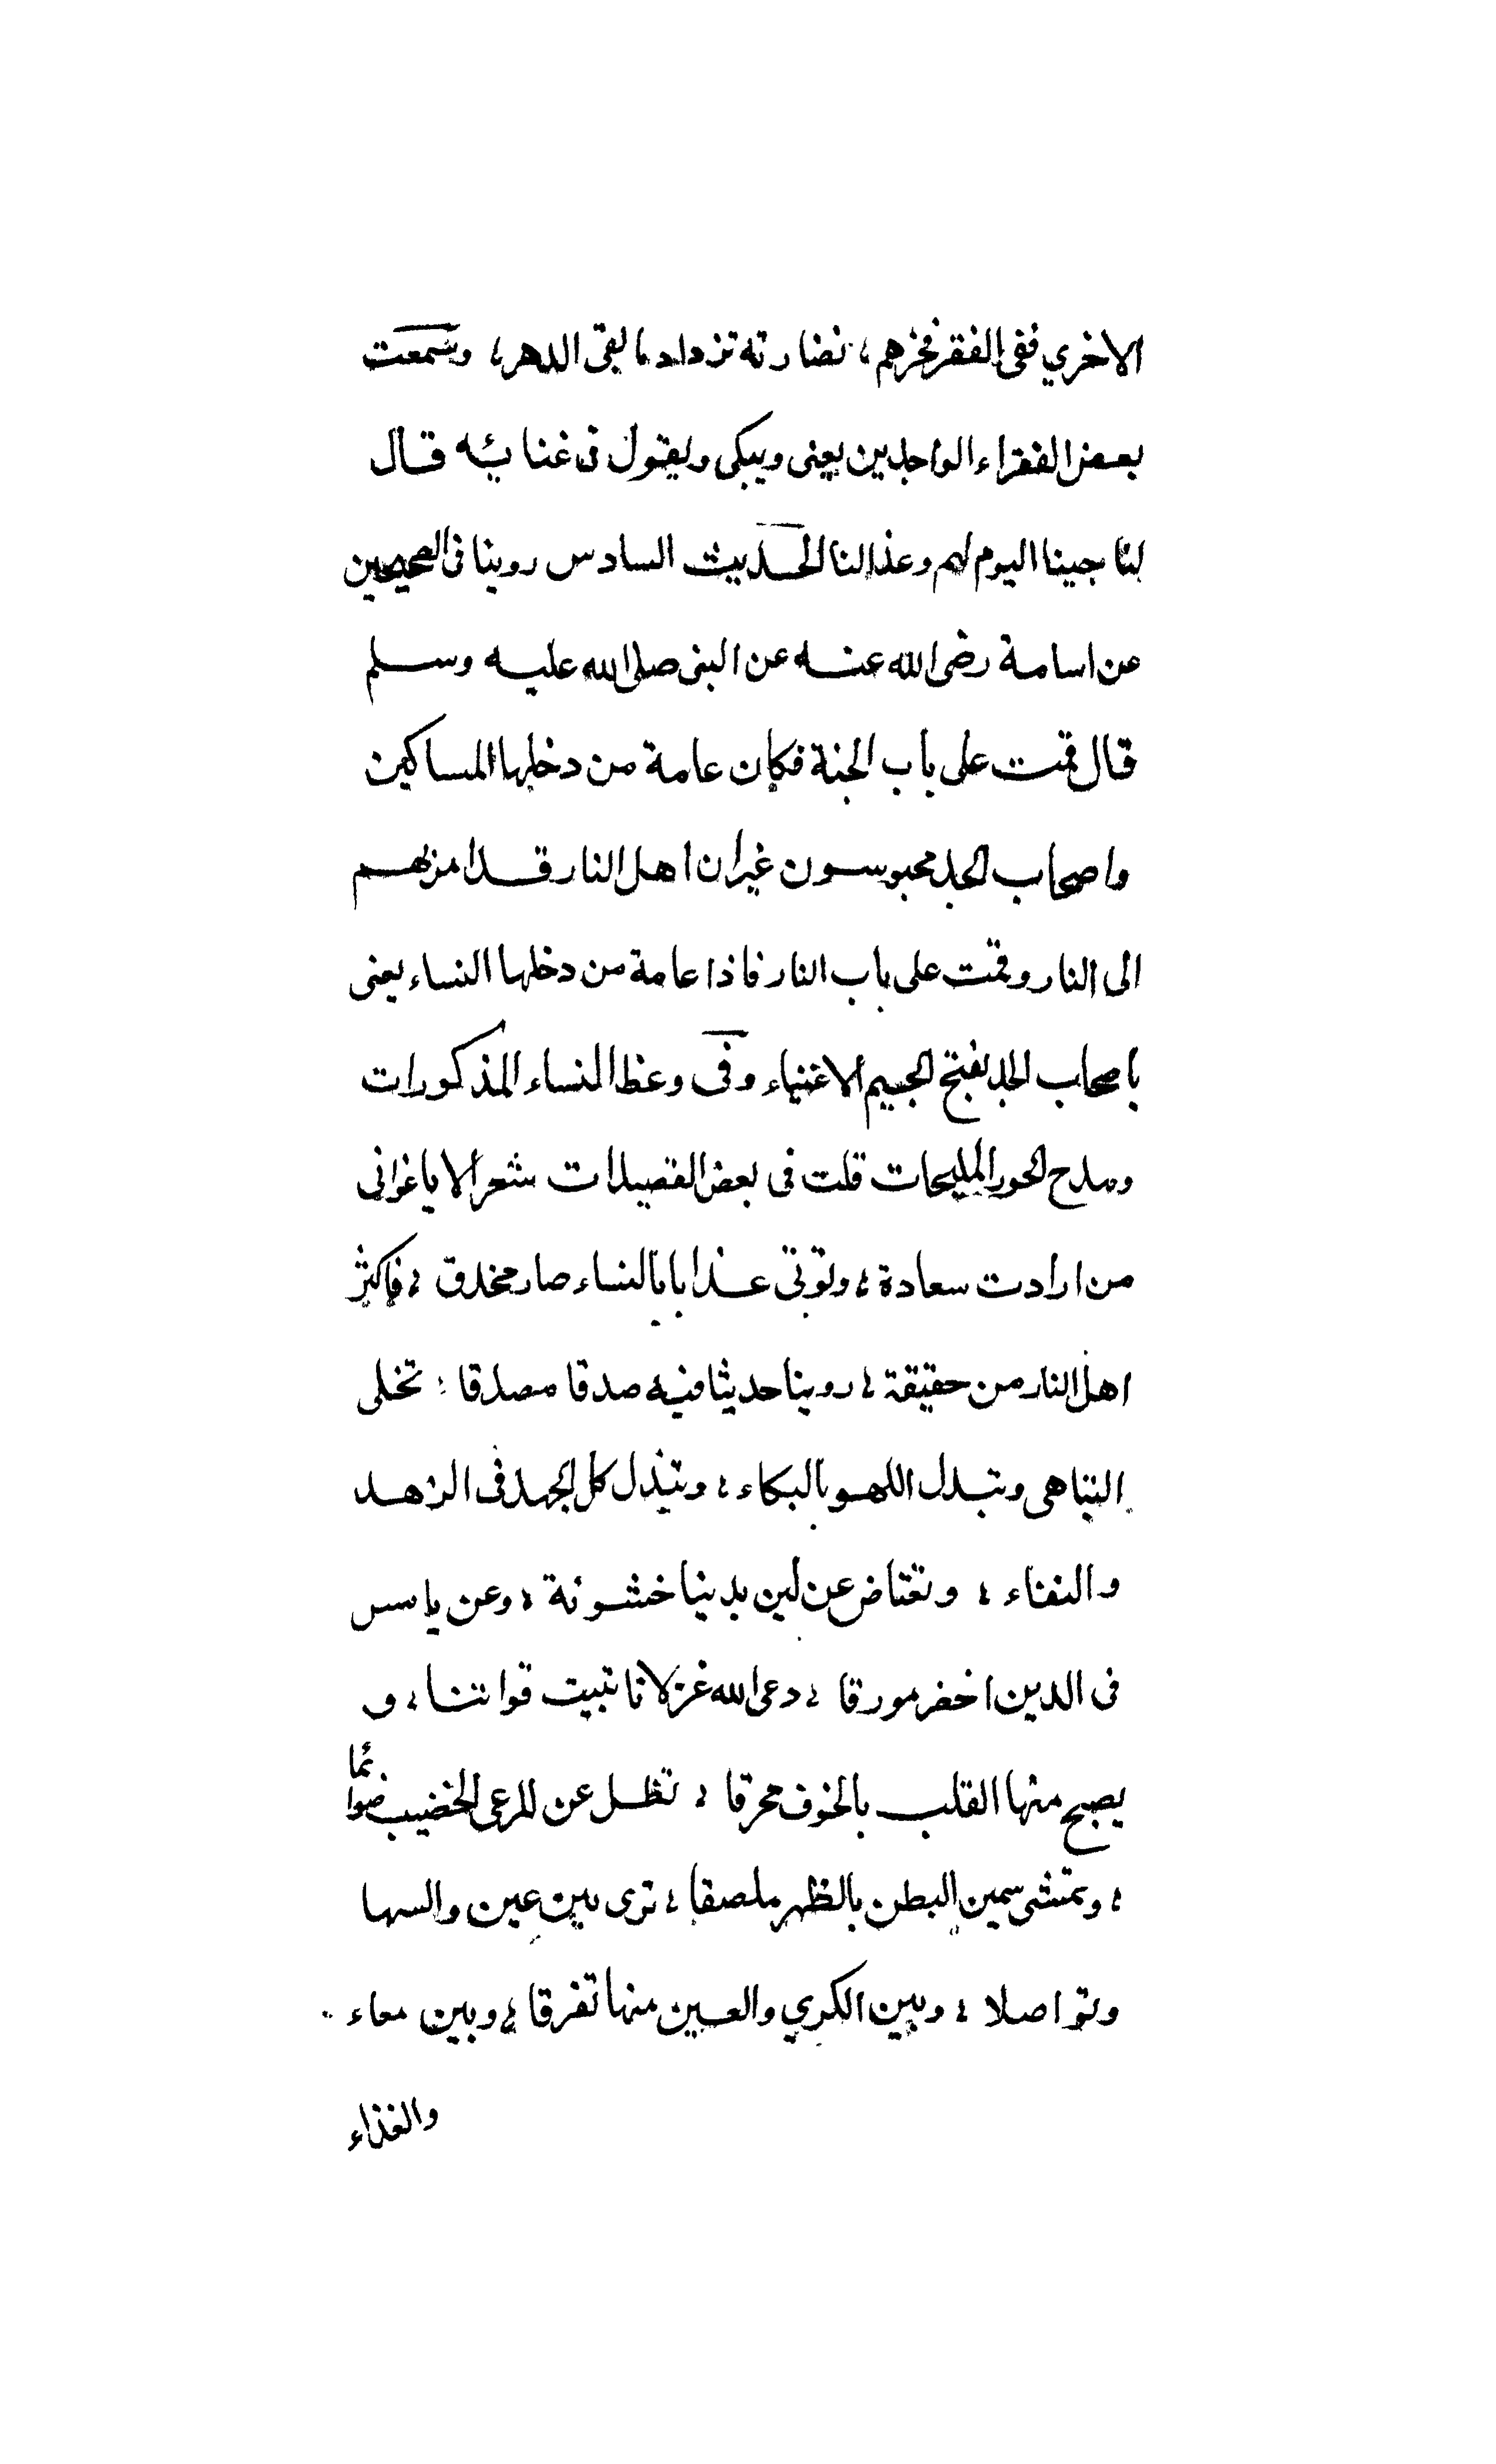 الاخري ففى الفقر فخرهم، نضارته تزداد ما لبقى الدهر، وسمعت
بعض الفقراء الواجدين يعنى ويبكى ويقول فى غنائه قال
لنا جينا اليوم لهم وغذا لنا الحديث السادس روينا فى الصحيحين
عن اسامة رضى الله عنه عن النبى صلى الله عليه وسلم
قال قمت على باب الجنة فكان عامة من دخلها المساكين
واصحاب الجد محبوسون غيران اهل النار قد امر بهم
الى النار وقمت على باب النار فاذا عامة من دخلها النساء يعنى
باصحاب الجد بفتح الجيم الاغنياء وفى وعظ النساء المذكورات
ومدح الحور المليحات قلت فى بعض القصيدات شعر الا يا غوانى
من ارادت سعادة، وتوتى عذابا بالنساء صار محدق، فاكثر
اهل النار من حقيقة، روينا حديثا فيه صدقا مصدقا؛ تخلى
التباهى وتبدل اللهو بالبكاء، وتبذل كل الجهد فى الزهد
والنفاء، وتعتاض عن لين بدينا خشونة، وعن يا سس
فى الدين اخضر مورقا، دعى الله غزلانا تبيت قوانتنا، و
يصبح منها القلب بالخوف محرقا، تظل عن المرعى الخضيب ضوائما
، وتمشى سمين البطن بالظهر ملصقا، ترى بين عين والسها
وتواصلا، وبين الكري والعين منها تفرقا، وبين معاء
والغذاء